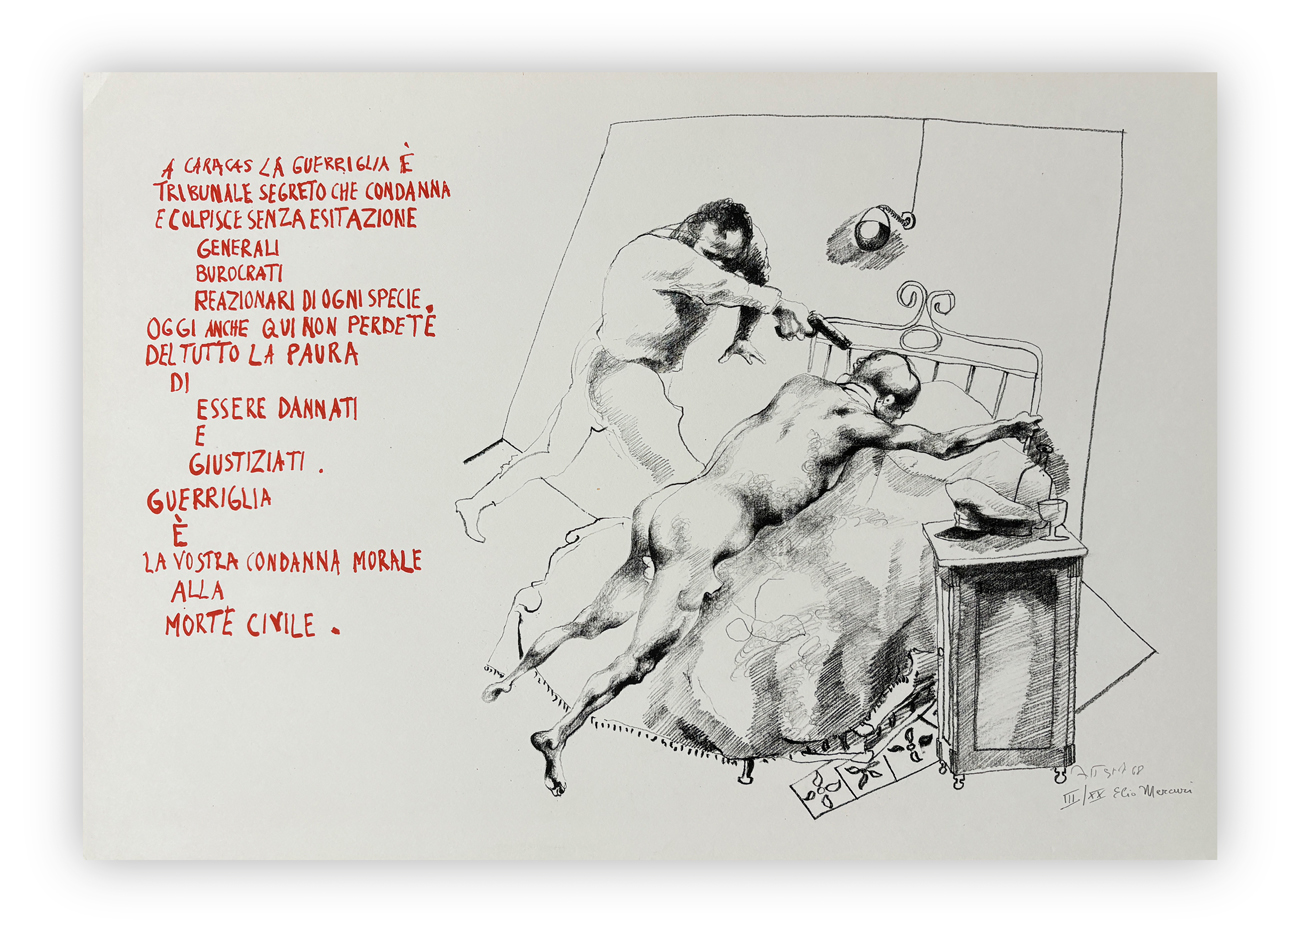 A CARACAS LA GUERRIGLIA È
TRIBUNALE SEGRETO CHE CONDANNA
E COLPISCE SENZA ESITAZIONE
GENERALI
BUROCRATI
REAZIONARI DI OGNI SPECIE.
OGGI ANCHE QUI NON PERDETE
DEL TUTTO LA PAURA
DI
ESSERE DANNATI
E
GIUSTIZIATI.
GUERRIGLIA
È
LA VOSTRA CONDANNA MORALE
ALLA
MORTE CIVILE.
68
III/XX Elio Mercuri